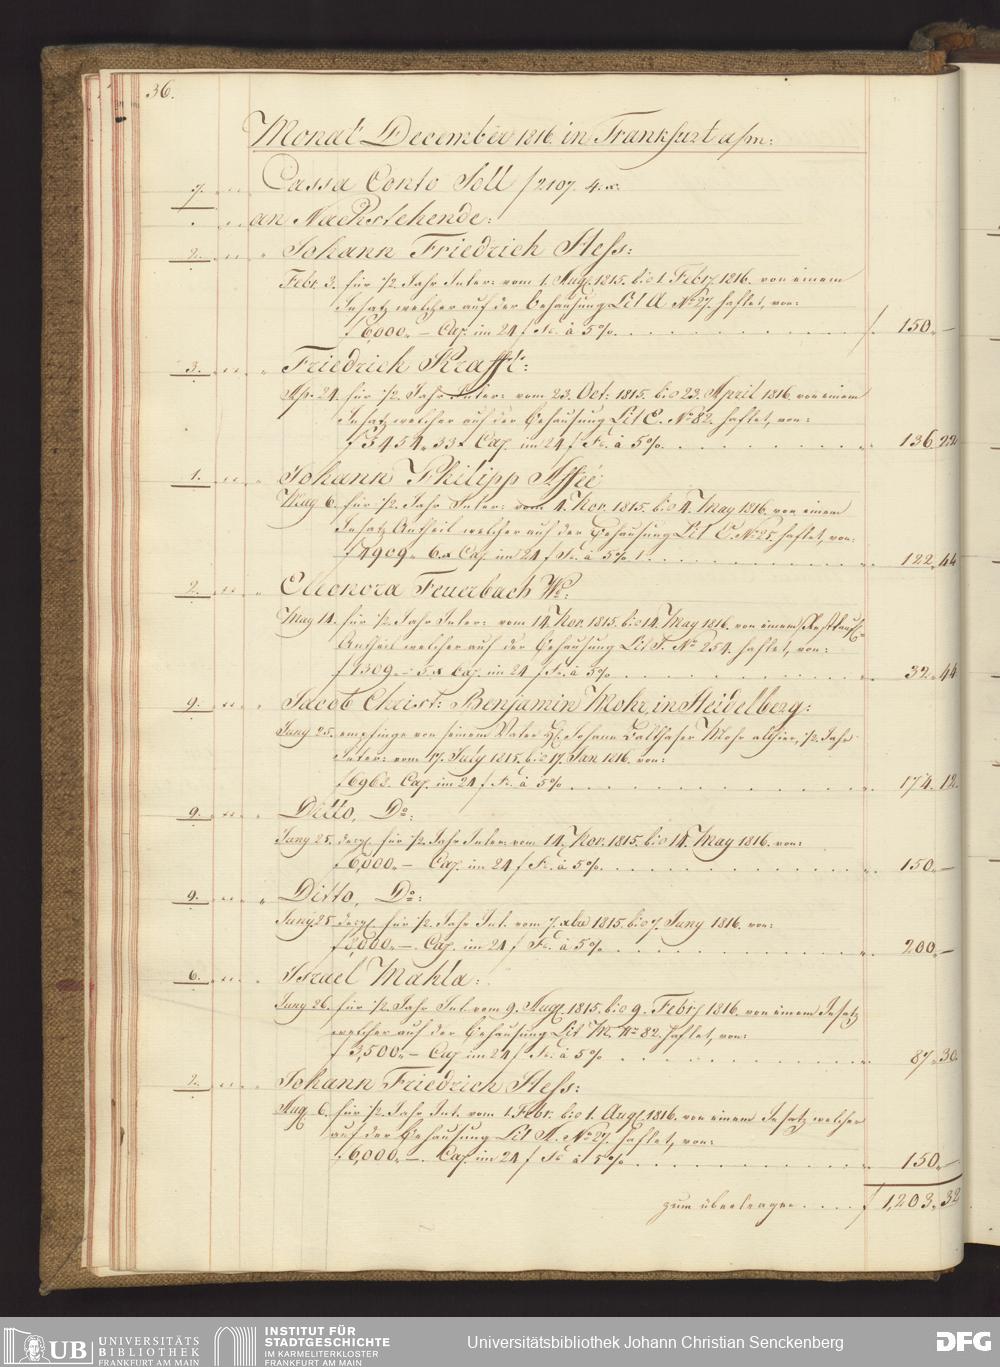 36.
Monat December 1816. in Frankfurt a/m:
7. Cassa Conto Soll f 2107. 4. x.
an Nachstehende:
2. Johann Friedrich Hess:
Febr. 3. für 1/2 Jahr Inter: vom 1. Aug. 1815. bis 1. Febr. 1816. von einem
Insatz welcher auf der Behausung Lit A No 27. haftet, von:
f 6,000. – Cap. im 24 f Fs. à 5 %. f 150. –
3. Friedrich Krafft:
Ap. 24. für 1/2 Jahr Inter: vom 23. Oct: 1815. bis 23. April 1816 von einem
Insatz welcher auf der Behausung Lit C. No 82. haftet, von:
f 5454. 33 x Cap. im 24 f Fs. à 5 %. 136. 22
1. Johann Philipp Affée
May 6. für 1/2 Jahr Inter: vom 4. Nov. 1815. bis 4. May 1816. von einem
Insatz Antheil welcher auf der Behausung Lit C. No 25. haftet, von:
f 4909. 6 x Cap. im 24 f Fs. à 5 % 122. 44
2. Eleonora Feuerbach We:
May 14. für 1/2 Jahr Inter: vom 14. Nov. 1815. bis 14. May 1816. von einem
Antheil welcher auf der Behausung Lit F. No 254. haftet, von:
f 1309. 5 x Cap. im 24 f Fs. à 5 % 32. 44
9. Jacob Christ: Benjamin Mohr, in Heidelberg:
Juny 25. empfinge von seinem Vater H. Johann Balthaser Mohr alhier, 1/2 Jahr
Inter: vom 17. July 1815. bis 17. Jan 1816. von:
f 6968. Cap. im 24 f Fs. à 5 % 174. 12.
9. Ditto, Do:
Juny 25. desgl. für 1/2 Jahr Inter: vom 14. Nov. 1815. bis 14. May 1816. von:
f 6,000. – Cap. im 24 f Fs. à 5 %. 150. –
9. Ditto, Do:
Juny 25 desgl. für 1/2 Jahr Int. vom 7. xber 1815. bis 7. Juny 1816. von:
f 8,000. – Cap. im 24 f Fs. à 5 % 200. –
6. Israel Mahla:
Juny 26. für 1/2 Jahr Int. vom 9. Aug. 1815. bis 9. Febr. 1816. von einem Insatz
welcher auf der Behausung Lit M. No 82. haftet, von:
f 3,500. – Cap im 24 f Fs. à 5 % 87. 30.
2. Johann Friedrich Hess:
Aug. 6. für 1/2 Jahr Int. vom 1. Febr. bis 1. Aug. 1816. von einem Insatz welcher
auf der Behausung Lit A. No 27. haftet, von:
f 6,000. – Cap. im 24 f Fs à 5 % 150. –
zum übertragen f 1,203. 32
UB UNIVERSITÄTS BIBLIOTHEK FRANKFURT AM MAIN
INSTITUT FÜR STADTGESCHICHTE IM KARMELITERKLOSTER FRANKFURT AM MAIN
Universitätsbibliothek Johann Christian Senckenberg
DFG